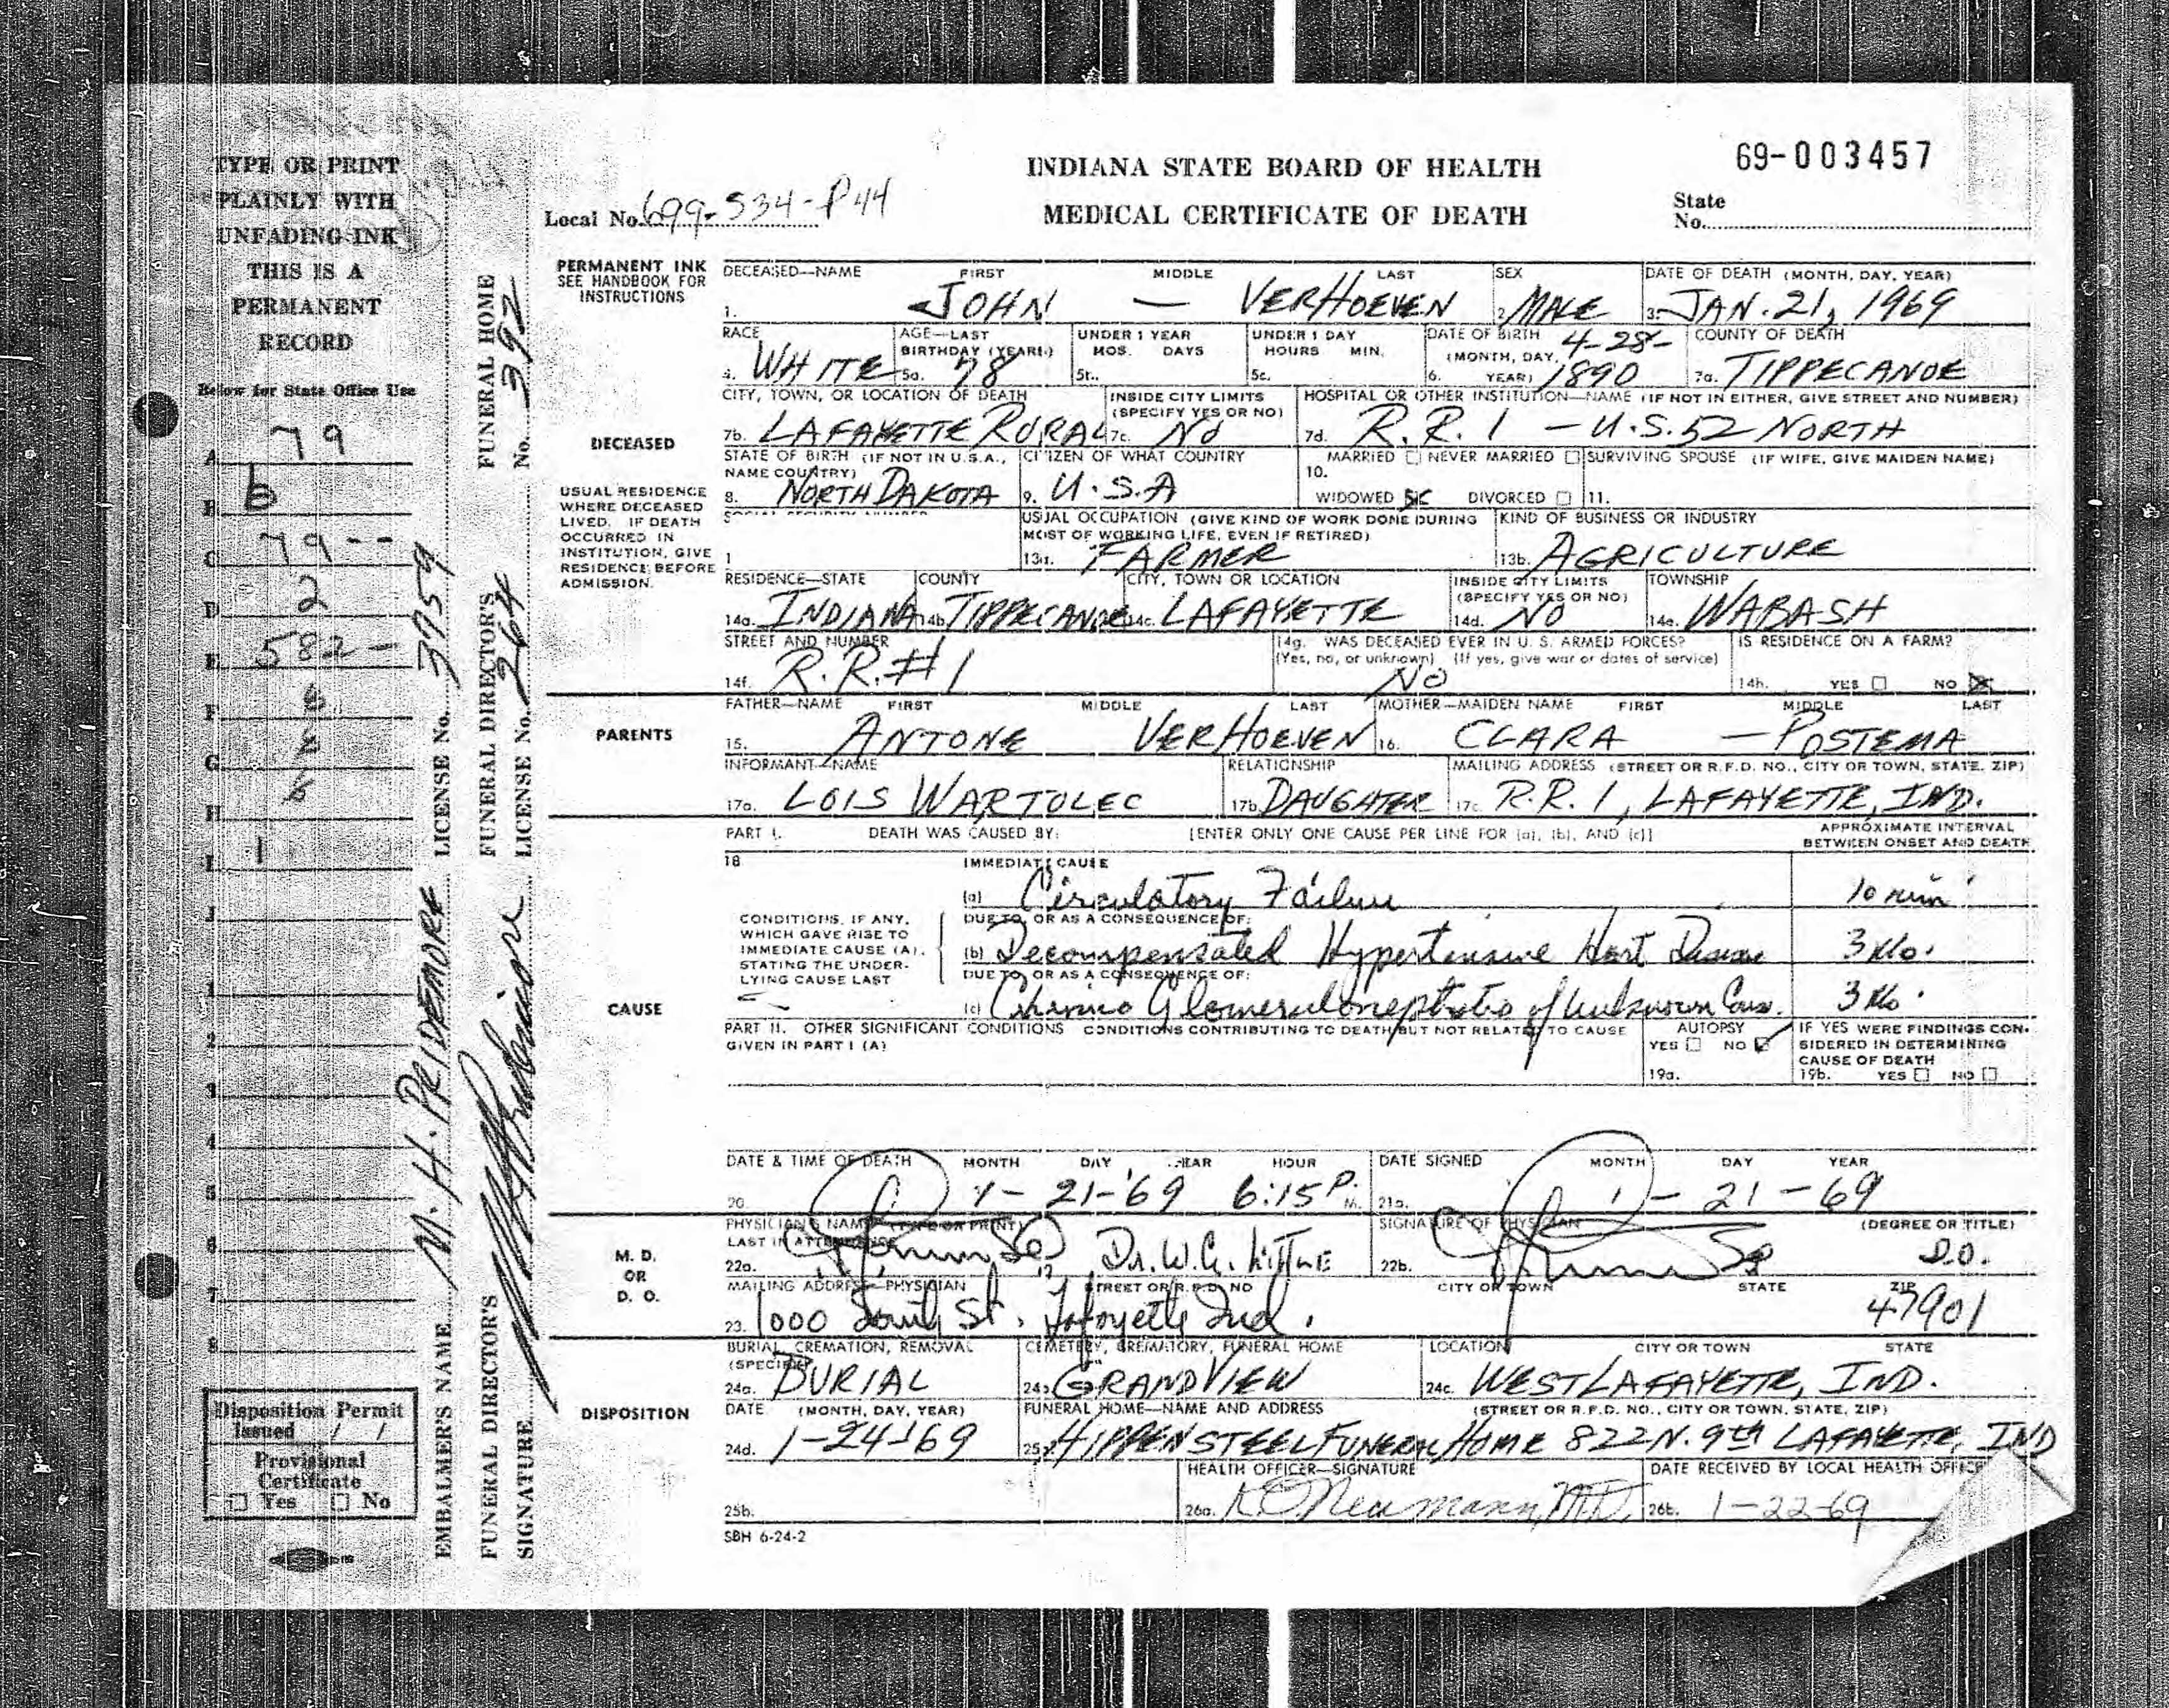 69-003457
INDIANA STATE BOARD OF HEALTH
MEDICAL CERTIFICATE OF DEATH
Local No. 699-534-P44
State
No.
TYPE OR PRINT
PLAINLY WITH
UNFADING INK
THIS IS A
PERMANENT
RECORD
Below for State Office Use
A 79
B b
C 79--
D 2
E 582-
F 6
G 6
H 6
I 1
J
1
2
3
4
5
6
7
8
Disposition Permit
Issued / /
Provisional
Certificate
☐ Yes ☐ No
EMBALMER'S NAME M. H. PRIDEMORE LICENSE No. 3759
FUNERAL DIRECTOR'S
SIGNATURE
FUNERAL DIRECTOR'S
LICENSE No. 264
FUNERAL HOME
No. 392
PERMANENT INK
SEE HANDBOOK FOR
INSTRUCTIONS
DECEASED—NAME FIRST MIDDLE LAST SEX DATE OF DEATH (MONTH, DAY, YEAR)
1. JOHN — VERHOEVEN 2. MALE 3. JAN. 21, 1969
RACE AGE—LAST BIRTHDAY (YEARS) UNDER 1 YEAR MOS. DAYS UNDER 1 DAY HOURS MIN. DATE OF BIRTH (MONTH, DAY, YEAR) COUNTY OF DEATH
4. WHITE 5a. 78 5b. 5c. 6. 4-28-1890 7a. TIPPECANOE
CITY, TOWN, OR LOCATION OF DEATH INSIDE CITY LIMITS (SPECIFY YES OR NO) HOSPITAL OR OTHER INSTITUTION—NAME (IF NOT IN EITHER, GIVE STREET AND NUMBER)
DECEASED
7b. LAFAYETTE RURAL 7c. NO 7d. R.R. 1 - U.S. 52 NORTH
STATE OF BIRTH (IF NOT IN U.S.A., NAME COUNTRY) CITIZEN OF WHAT COUNTRY MARRIED ☐ NEVER MARRIED ☐ SURVIVING SPOUSE (IF WIFE, GIVE MAIDEN NAME)
8. NORTH DAKOTA 9. U.S.A 10. WIDOWED ☒ DIVORCED ☐ 11.
USUAL RESIDENCE
WHERE DECEASED
LIVED. IF DEATH
OCCURRED IN
INSTITUTION, GIVE
RESIDENCE BEFORE
ADMISSION.
SOCIAL SECURITY NUMBER USUAL OCCUPATION (GIVE KIND OF WORK DONE DURING MOST OF WORKING LIFE, EVEN IF RETIRED) KIND OF BUSINESS OR INDUSTRY
1 13a. FARMER 13b. AGRICULTURE
RESIDENCE—STATE COUNTY CITY, TOWN OR LOCATION INSIDE CITY LIMITS (SPECIFY YES OR NO) TOWNSHIP
14a. INDIANA 14b. TIPPECANOE 14c. LAFAYETTE 14d. NO 14e. WABASH
STREET AND NUMBER 14g. WAS DECEASED EVER IN U. S. ARMED FORCES? (Yes, no, or unknown) (If yes, give war or dates of service) IS RESIDENCE ON A FARM?
14f. R.R.#1 NO 14h. YES ☐ NO ☒
PARENTS
FATHER—NAME FIRST MIDDLE LAST MOTHER—MAIDEN NAME FIRST MIDDLE LAST
15. ANTONE VERHOEVEN 16. CLARA — POSTEMA
INFORMANT—NAME RELATIONSHIP MAILING ADDRESS (STREET OR R.F.D. NO., CITY OR TOWN, STATE, ZIP)
17a. LOIS WARTOLEC 17b. DAUGHTER 17c. R.R. 1, LAFAYETTE, IND.
PART I. DEATH WAS CAUSED BY: [ENTER ONLY ONE CAUSE PER LINE FOR (a), (b), AND (c)] APPROXIMATE INTERVAL BETWEEN ONSET AND DEATH
18 IMMEDIATE CAUSE
(a) Circulatory Failure 10 min
CAUSE
CONDITIONS, IF ANY,
WHICH GAVE RISE TO
IMMEDIATE CAUSE (A),
STATING THE UNDER-
LYING CAUSE LAST
DUE TO, OR AS A CONSEQUENCE OF:
(b) Decompensated Hypertensive Hart Disease 3 Mo.
DUE TO, OR AS A CONSEQUENCE OF:
(c) Chronic Glomerulonephritis of Unknown Caus. 3 Mo.
PART II. OTHER SIGNIFICANT CONDITIONS CONDITIONS CONTRIBUTING TO DEATH BUT NOT RELATED TO CAUSE GIVEN IN PART I (A)
AUTOPSY YES ☐ NO ☑ 19a.
IF YES WERE FINDINGS CONSIDERED IN DETERMINING CAUSE OF DEATH 19b. YES ☐ NO ☐
DATE & TIME OF DEATH MONTH DAY YEAR HOUR DATE SIGNED MONTH DAY YEAR
20. 1-21-'69 6:15 P. M. 21a. 1-21-69
M. D.
OR
D. O.
PHYSICIAN'S NAME (TYPE OR PRINT) LAST IN ATTENDANCE SIGNATURE OF PHYSICIAN (DEGREE OR TITLE)
22a. Dr. W. G. 22b. D.O.
MAILING ADDRESS—PHYSICIAN STREET OR R.F.D. NO CITY OR TOWN STATE ZIP
23. 1000 South St. Lafayette Ind. 47901
DISPOSITION
BURIAL, CREMATION, REMOVAL (SPECIFY) CEMETERY, CREMATORY, FUNERAL HOME LOCATION CITY OR TOWN STATE
24a. BURIAL 24b. GRANDVIEW 24c. WEST LAFAYETTE, IND.
DATE (MONTH, DAY, YEAR) FUNERAL HOME—NAME AND ADDRESS (STREET OR R.F.D. NO., CITY OR TOWN, STATE, ZIP)
24d. 1-24-69 25a. HIPPENSTEEL FUNERAL HOME 822 N. 9th LAFAYETTE, IND
HEALTH OFFICER—SIGNATURE DATE RECEIVED BY LOCAL HEALTH OFFICE
25b. 26a. Neumann, M.D. 26b. 1-22-69
SBH 6-24-2